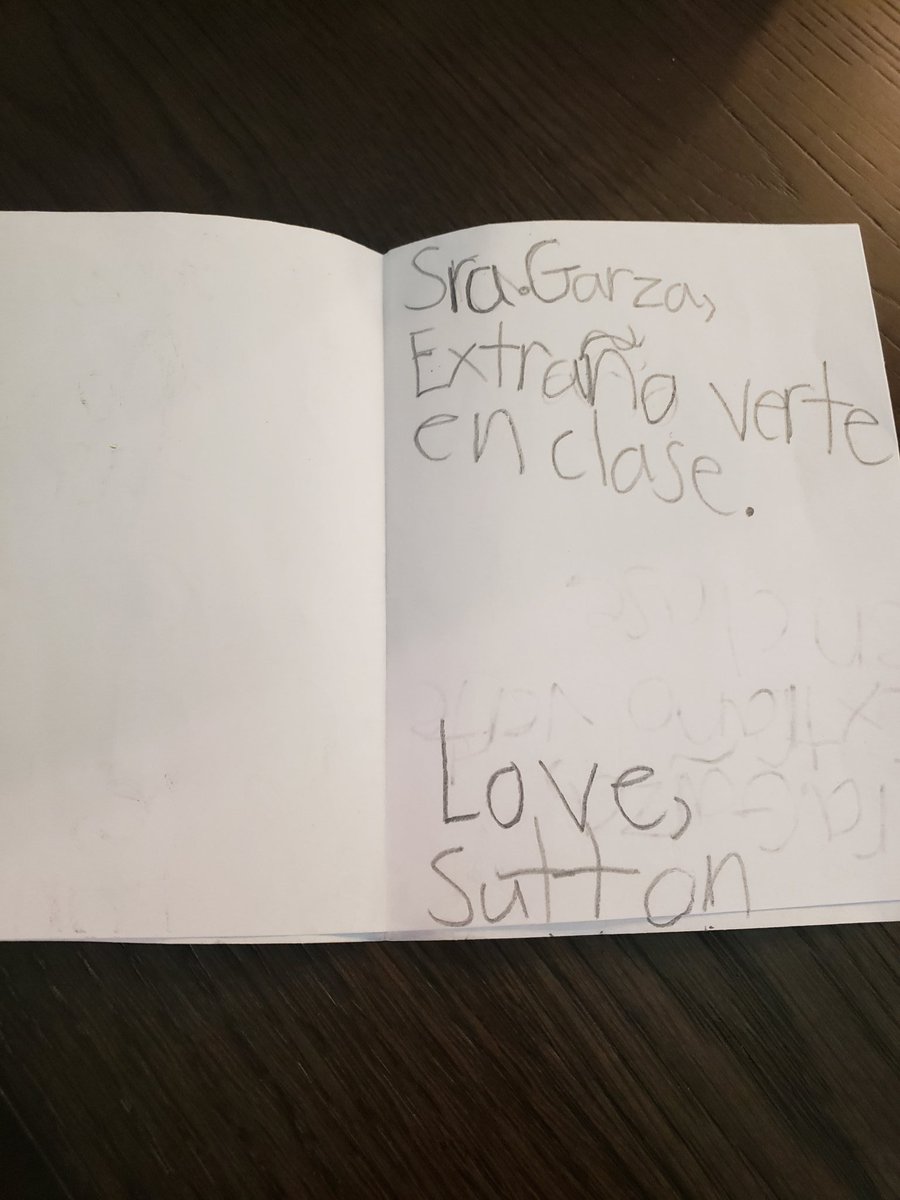 Sra.Garza,
Extraño verte
en clase.
Love,
Sutton